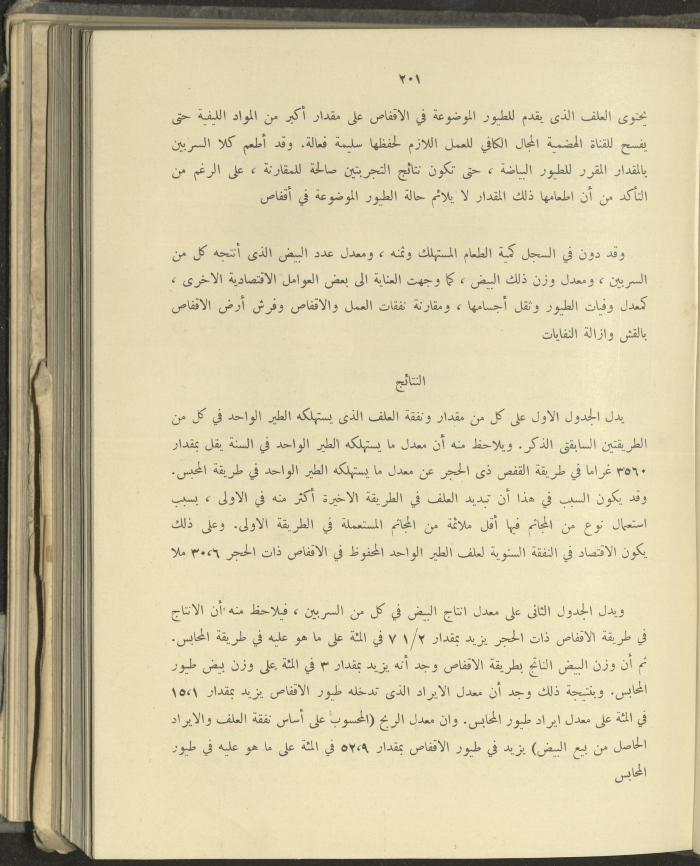 ٢٠١
يحتوى العلف الذى يقدم للطيور الموضوعة في الاقفاص على مقدار أكبر من المواد الليفية حتى
يفسح للقناة الهضمية المجال الكافي للعمل اللازم لحفظها سليمة فعالة. وقد أطعم كلا السربين
بالمقدار المقرر للطيور البياضة ، حتى تكون نتائج التجربتين صالحة للمقارنة ، على الرغم من
التأكد من أن اطعامها ذلك المقدار لا يلائم حالة الطيور الموضوعة في أقفاص
وقد دون في السجل كمية الطعام المستهلك وثمنه ، ومعدل عدد البيض الذى أنتجه كل من
السربين ، ومعدل وزن ذلك البيض ، كما وجهت العناية الى بعض العوامل الاقتصادية الاخرى ،
كمعدل وفيات الطيور وثقل أجسامها ، ومقارنة نفقات العمل والاقفاص وفرش أرض الاقفاص
بالقش وازالة النفايات
النتائج
يدل الجدول الاول على كل من مقدار ونفقة العلف الذى يستهلكه الطير الواحد في كل من
الطريقتين السابقتى الذكر. ويلاحظ منه أن معدل ما يستهلكه الطير الواحد في السنة يقل بمقدار
٣٥٦٠ غراما في طريقة القفص ذى الحجر عن معدل ما يستهلكه الطير الواحد في طريقة المحبس.
وقد يكون السبب في هذا أن تبديد العلف في الطريقة الاخيرة أكثر منه في الاولى ، بسبب
استعمال نوع من المجاثم فيها أقل ملائمة من المجاثم المستعملة في الطريقة الاولى. وعلى ذلك
يكون الاقتصاد في النفقة السنوية لعلف الطير الواحد المحفوظ في الاقفاص ذات الحجر ٣٠،٦ ملا
ويدل الجدول الثانى على معدل انتاج البيض في كل من السربين ، فيلاحظ منه أن الانتاج
في طريقة الاقفاص ذات الحجر يزيد بمقدار ٧ ١/٢ في المئة على ما هو عليه في طريقة المحابس.
ثم أن وزن البيض الناتج بطريقة الاقفاص وجد أنه يزيد بمقدار ٣ في المئة على وزن بيض طيور
المحابس. وبنتيجة ذلك وجد أن معدل الايراد الذى تدخله طيور الاقفاص يزيد بمقدار ١٥،١
في المئة على معدل ايراد طيور المحابس. وان معدل الربح (المحسوب على أساس نفقة العلف والايراد
الحاصل من بيع البيض) يزيد في طيور الاقفاص بمقدار ٥٢،٩ في المئة على ما هو عليه في طيور
المحابس